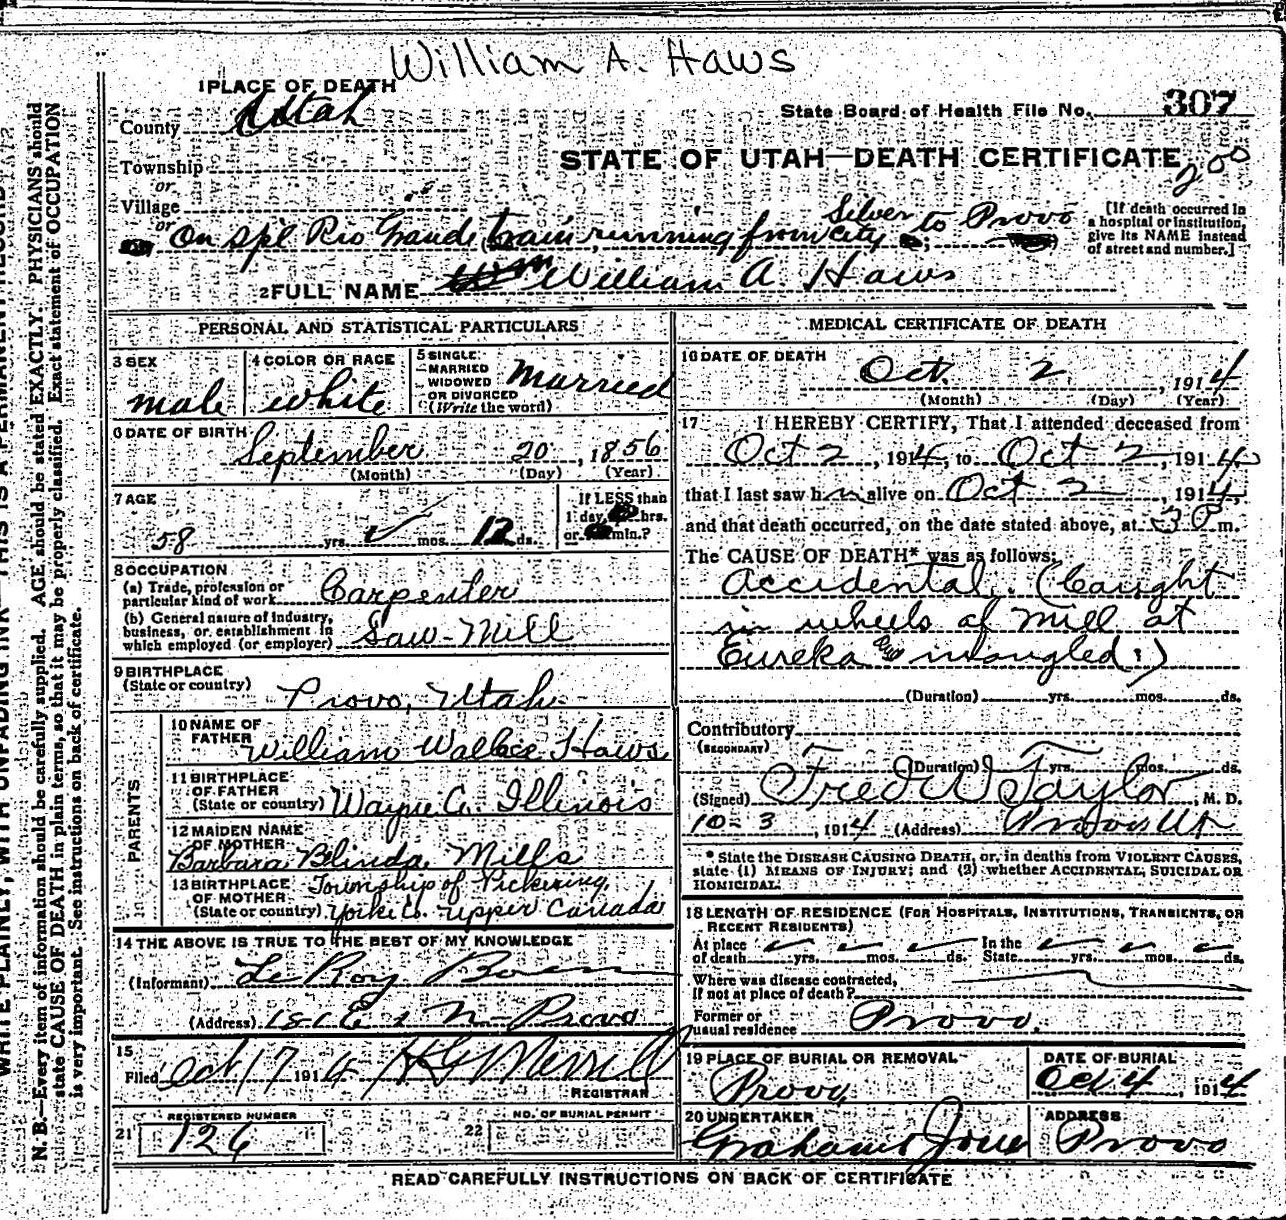 William A. Haws
1 PLACE OF DEATH
County Utah
State Board of Health File No. 307
Township
or
STATE OF UTAH—DEATH CERTIFICATE
200
Village
or
On spl Rio Grande train running from Silver City to Provo
[If death occurred in
a hospital or institution,
give its NAME instead
of street and number.]
2 FULL NAME William A. Haws
PERSONAL AND STATISTICAL PARTICULARS
3 SEX
male
4 COLOR OR RACE
white
5 SINGLE
MARRIED
WIDOWED
OR DIVORCED
(Write the word)
Married
6 DATE OF BIRTH
September 20, 1856
(Month) (Day) (Year)
7 AGE
58 yrs. mos. 12 ds.
If LESS than
1 day, hrs.
or min.?
8 OCCUPATION
(a) Trade, profession or
particular kind of work Carpenter
(b) General nature of industry,
business, or establishment in
which employed (or employer) Saw-Mill
9 BIRTHPLACE
(State or country) Provo, Utah
PARENTS
10 NAME OF
FATHER William Wallace Haws
11 BIRTHPLACE
OF FATHER
(State or country) Wayne Co. Illinois
12 MAIDEN NAME
OF MOTHER
Barbara Belinda Mills
13 BIRTHPLACE
OF MOTHER
(State or country)
Township of Pickering,
Yorke Co. Upper Canada
14 THE ABOVE IS TRUE TO THE BEST OF MY KNOWLEDGE
(Informant) Le Roy
(Address) Provo
15
Filed Oct 17 1914 H G Merrill
REGISTRAR
REGISTERED NUMBER
21 126
NO. OF BURIAL PERMIT
22
MEDICAL CERTIFICATE OF DEATH
16 DATE OF DEATH
Oct. 2, 1914
(Month) (Day) (Year)
17 I HEREBY CERTIFY, That I attended deceased from
Oct 2, 1914, to Oct 2, 1914
that I last saw him alive on Oct 2, 1914,
and that death occurred, on the date stated above, at 3 P m.
The CAUSE OF DEATH* was as follows:
Accidental. (Caught
in wheels of mill at
Eureka intangled)
(Duration) yrs. mos. ds.
Contributory
(SECONDARY)
(Duration) yrs. mos. ds.
(Signed) Fred W Taylor, M. D.
10-3, 1914 (Address) Provo Ut
* State the DISEASE CAUSING DEATH, or, in deaths from VIOLENT CAUSES,
state (1) MEANS OF INJURY; and (2) whether ACCIDENTAL, SUICIDAL OR
HOMICIDAL.
18 LENGTH OF RESIDENCE (FOR HOSPITALS, INSTITUTIONS, TRANSIENTS, OR
RECENT RESIDENTS)
At place
of death yrs. mos. ds.
In the
State yrs. mos. ds.
Where was disease contracted,
if not at place of death?
Former or
usual residence Provo.
19 PLACE OF BURIAL OR REMOVAL
Provo,
DATE OF BURIAL
Oct 4, 1914
20 UNDERTAKER
Graham
ADDRESS
Provo
READ CAREFULLY INSTRUCTIONS ON BACK OF CERTIFICATE
WRITE PLAINLY, WITH UNFADING INK—THIS IS A PERMANENT RECORD
N. B.—Every item of information should be carefully supplied. AGE should be stated EXACTLY. PHYSICIANS should
state CAUSE OF DEATH in plain terms, so that it may be properly classified. Exact statement of OCCUPATION
is very important. See instructions on back of certificate.